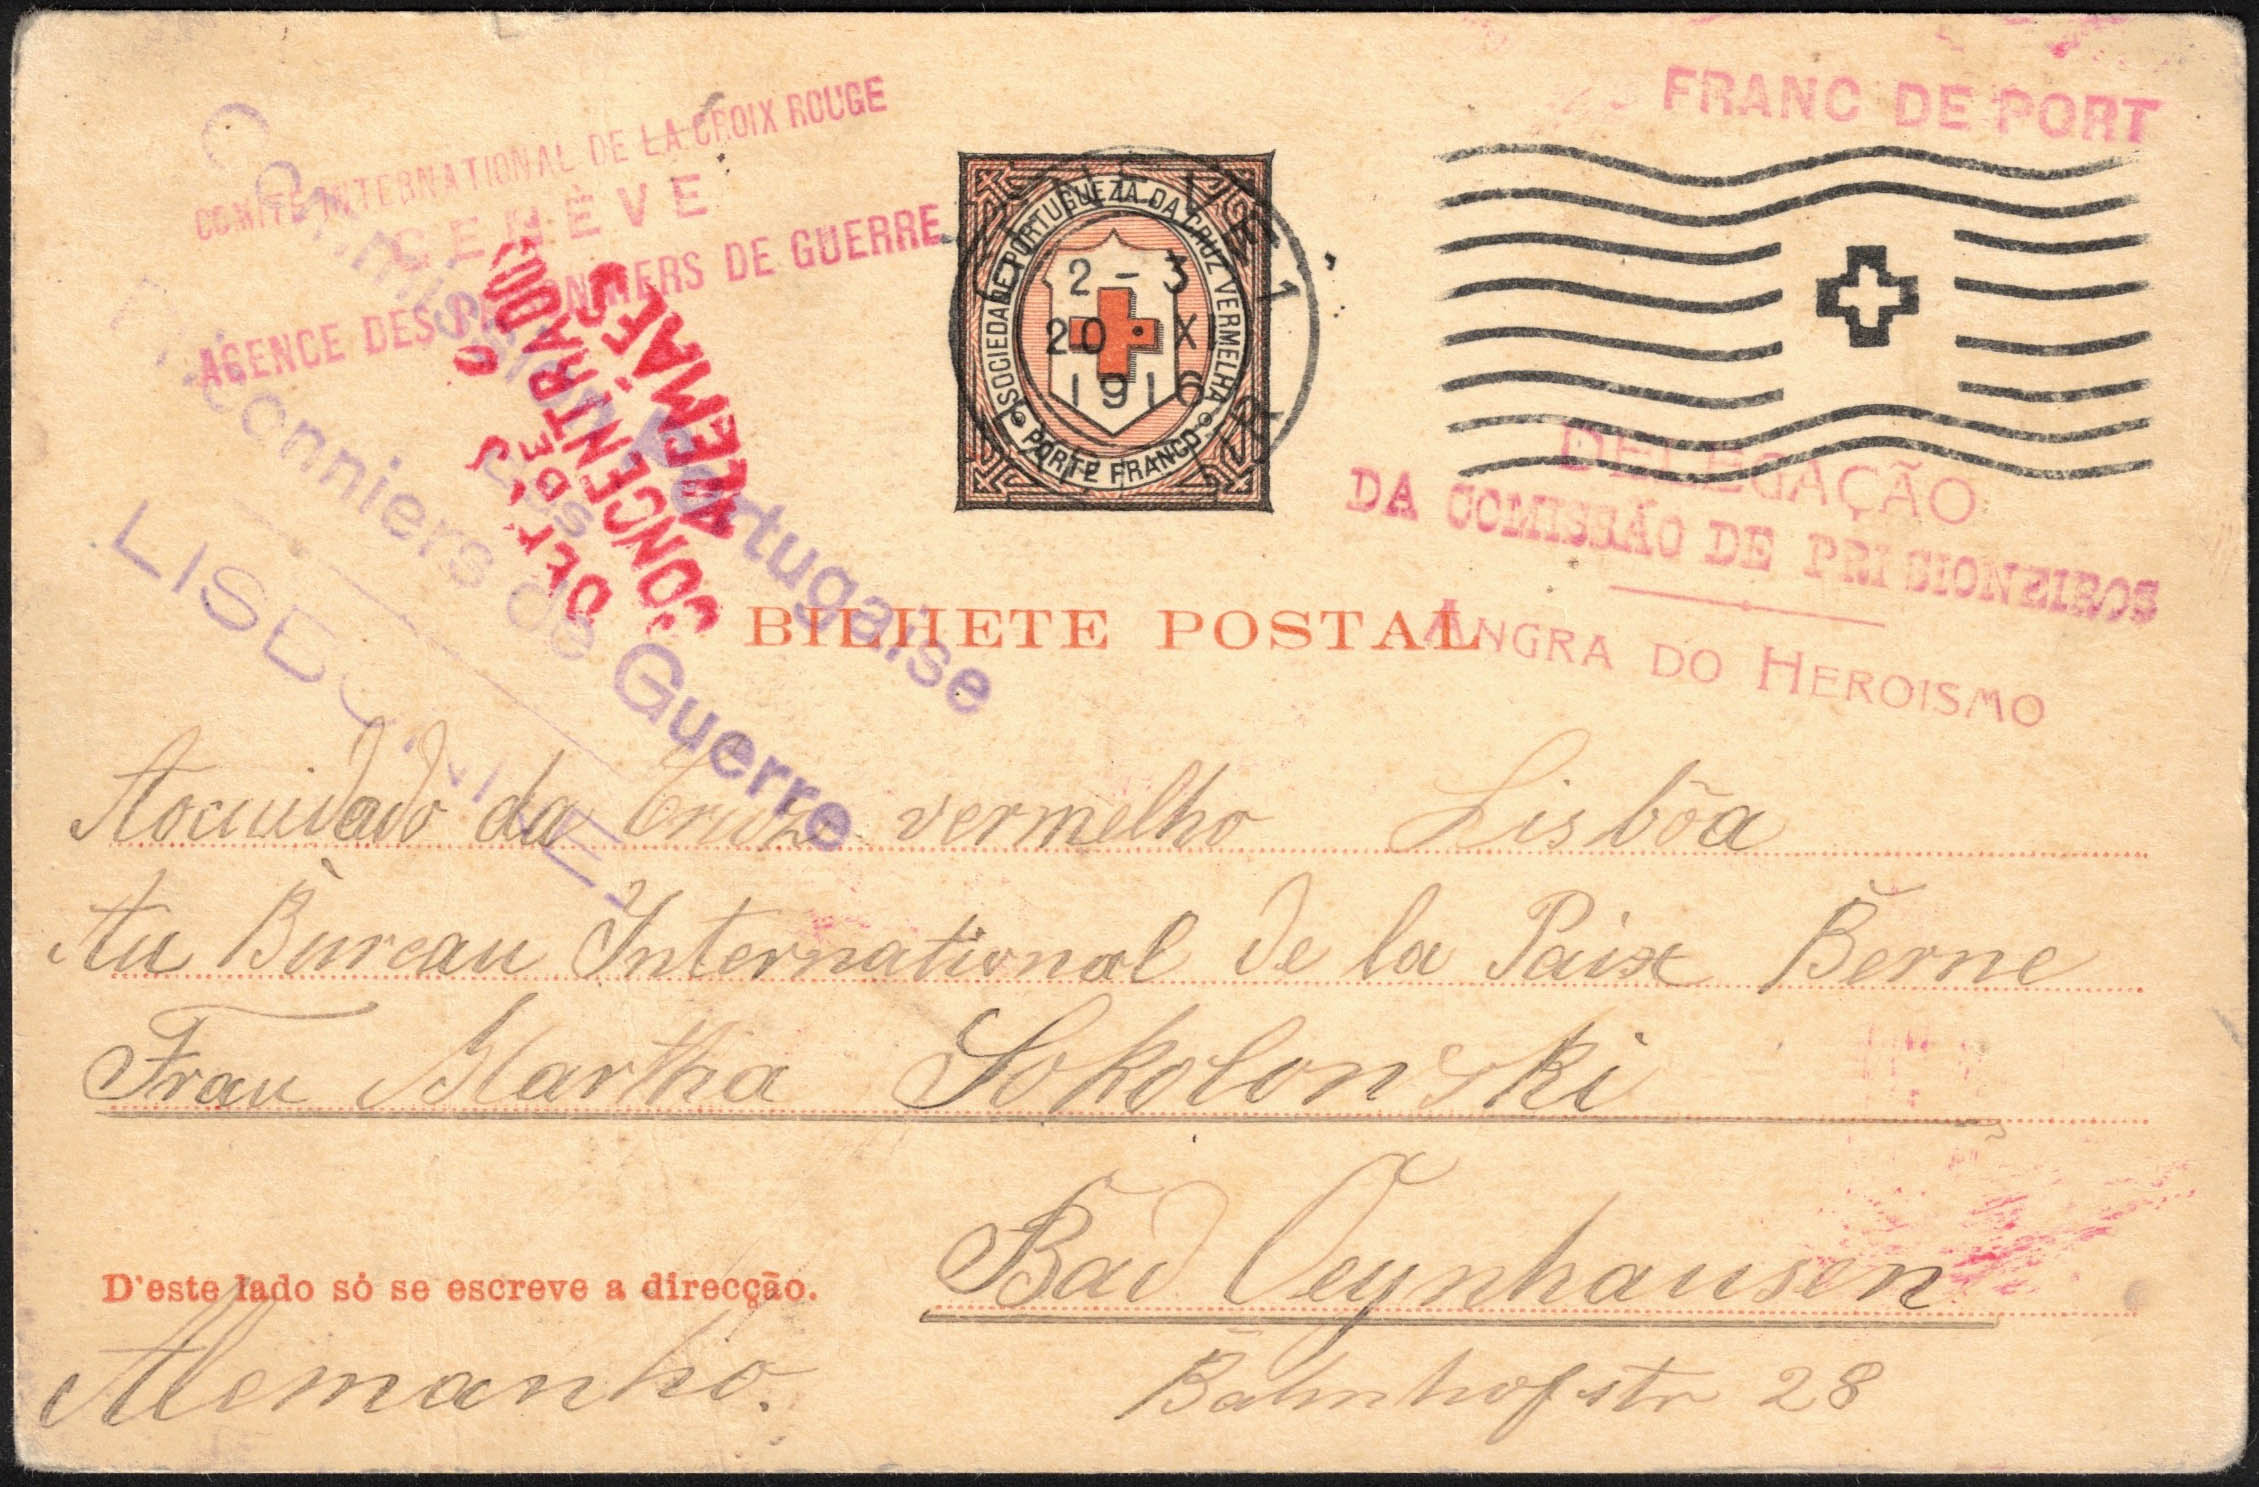 COMITÉ INTERNATIONAL DE LA CROIX ROUGE
GENÈVE
AGENCE DES PRISONNIERS DE GUERRE
Commission Portugaise
des
Prisonniers de Guerre
LISBONNE
DE
CONCENTRADOS
ALEMÃES
SOCIEDADE PORTUGUEZA DA CRUZ VERMELHA
PORTE FRANCO
GENÈVE 1
2-3
20·XI
1916
FRANC DE PORT
DELEGAÇÃO
DA COMISSÃO DE PRISIONEIROS
ANGRA DO HEROISMO
BILHETE POSTAL
Aocuidado da Cruze vermelho Lisbõa
Au Bureau International de la Paix Berne
Frau Martha Sokolowski
Bad Oeynhausen
D'este lado só se escreve a direcção.
Alemanho.
Bahnhofstr 28